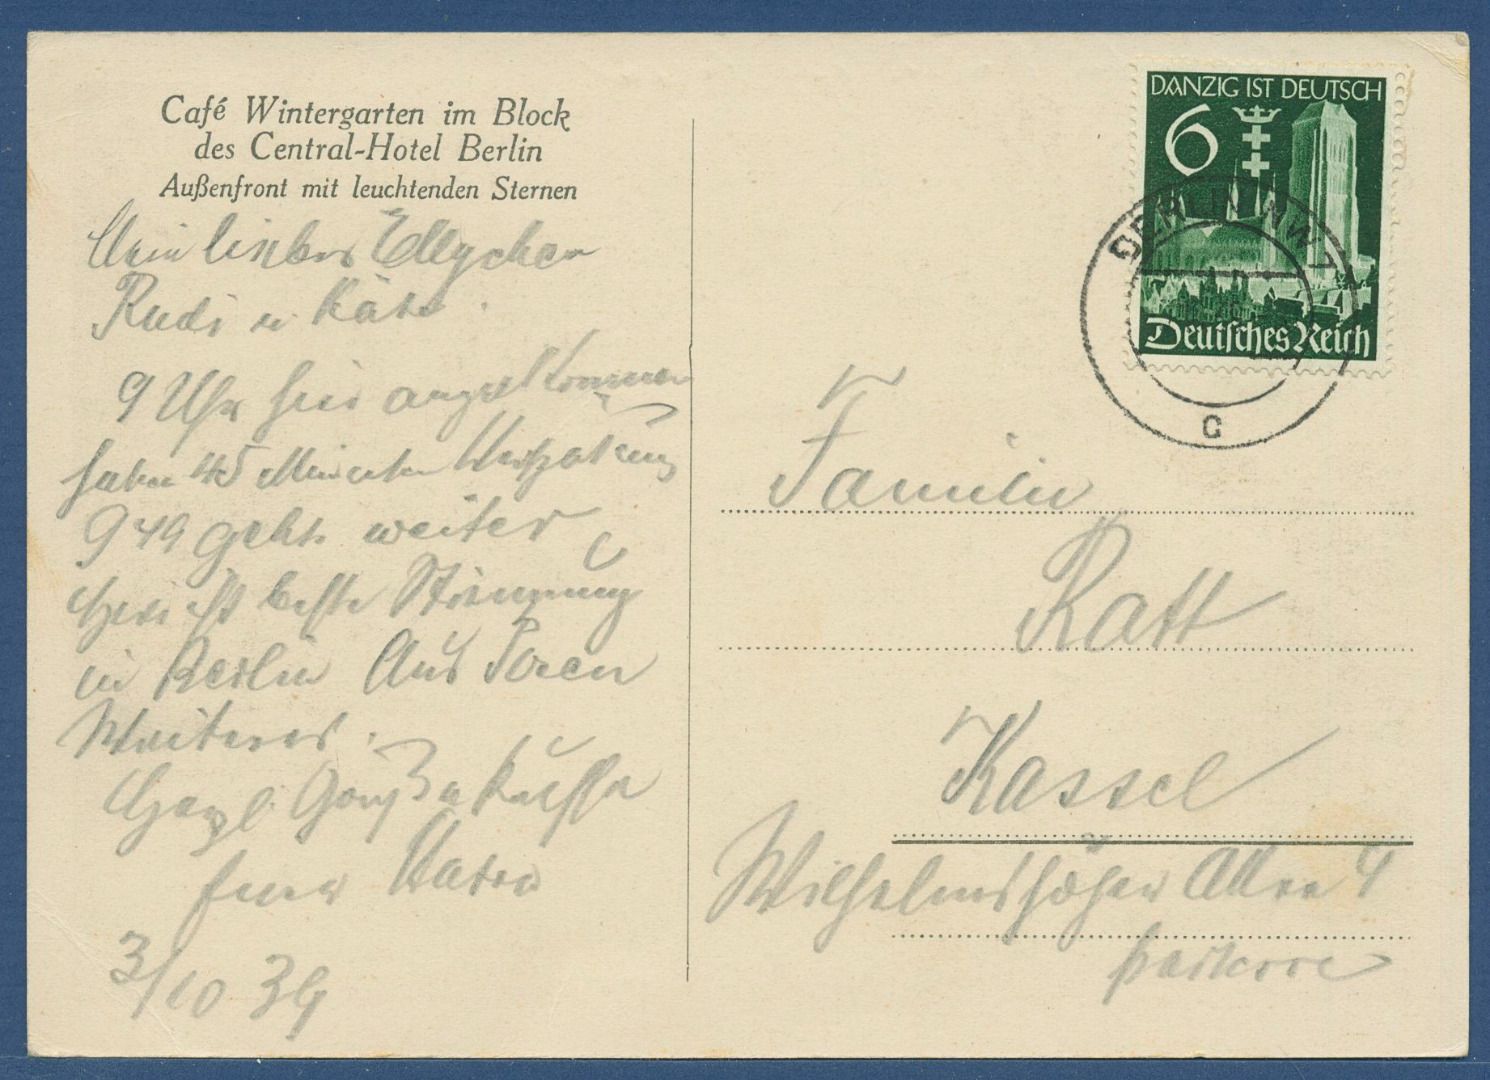 Café Wintergarten im Block
des Central-Hotel Berlin
Außenfront mit leuchtenden Sternen
Mein liebes Ellychen
Rudi u Käte
9 Uhr hier angekommen
haben 45 Minuten Verspätung
9 49 geht weiter
Hier ist beste Stimmung
in Berlin Aus Posen
Weiteres.
Herzl. Grüße u Küsse
Euer Vater
3/10 39
DANZIG IST DEUTSCH
6
Deutsches Reich
BERLIN NW 7
c
Familie
Ratt
Kassel
Wilhelmshöher Allee 4
parterre